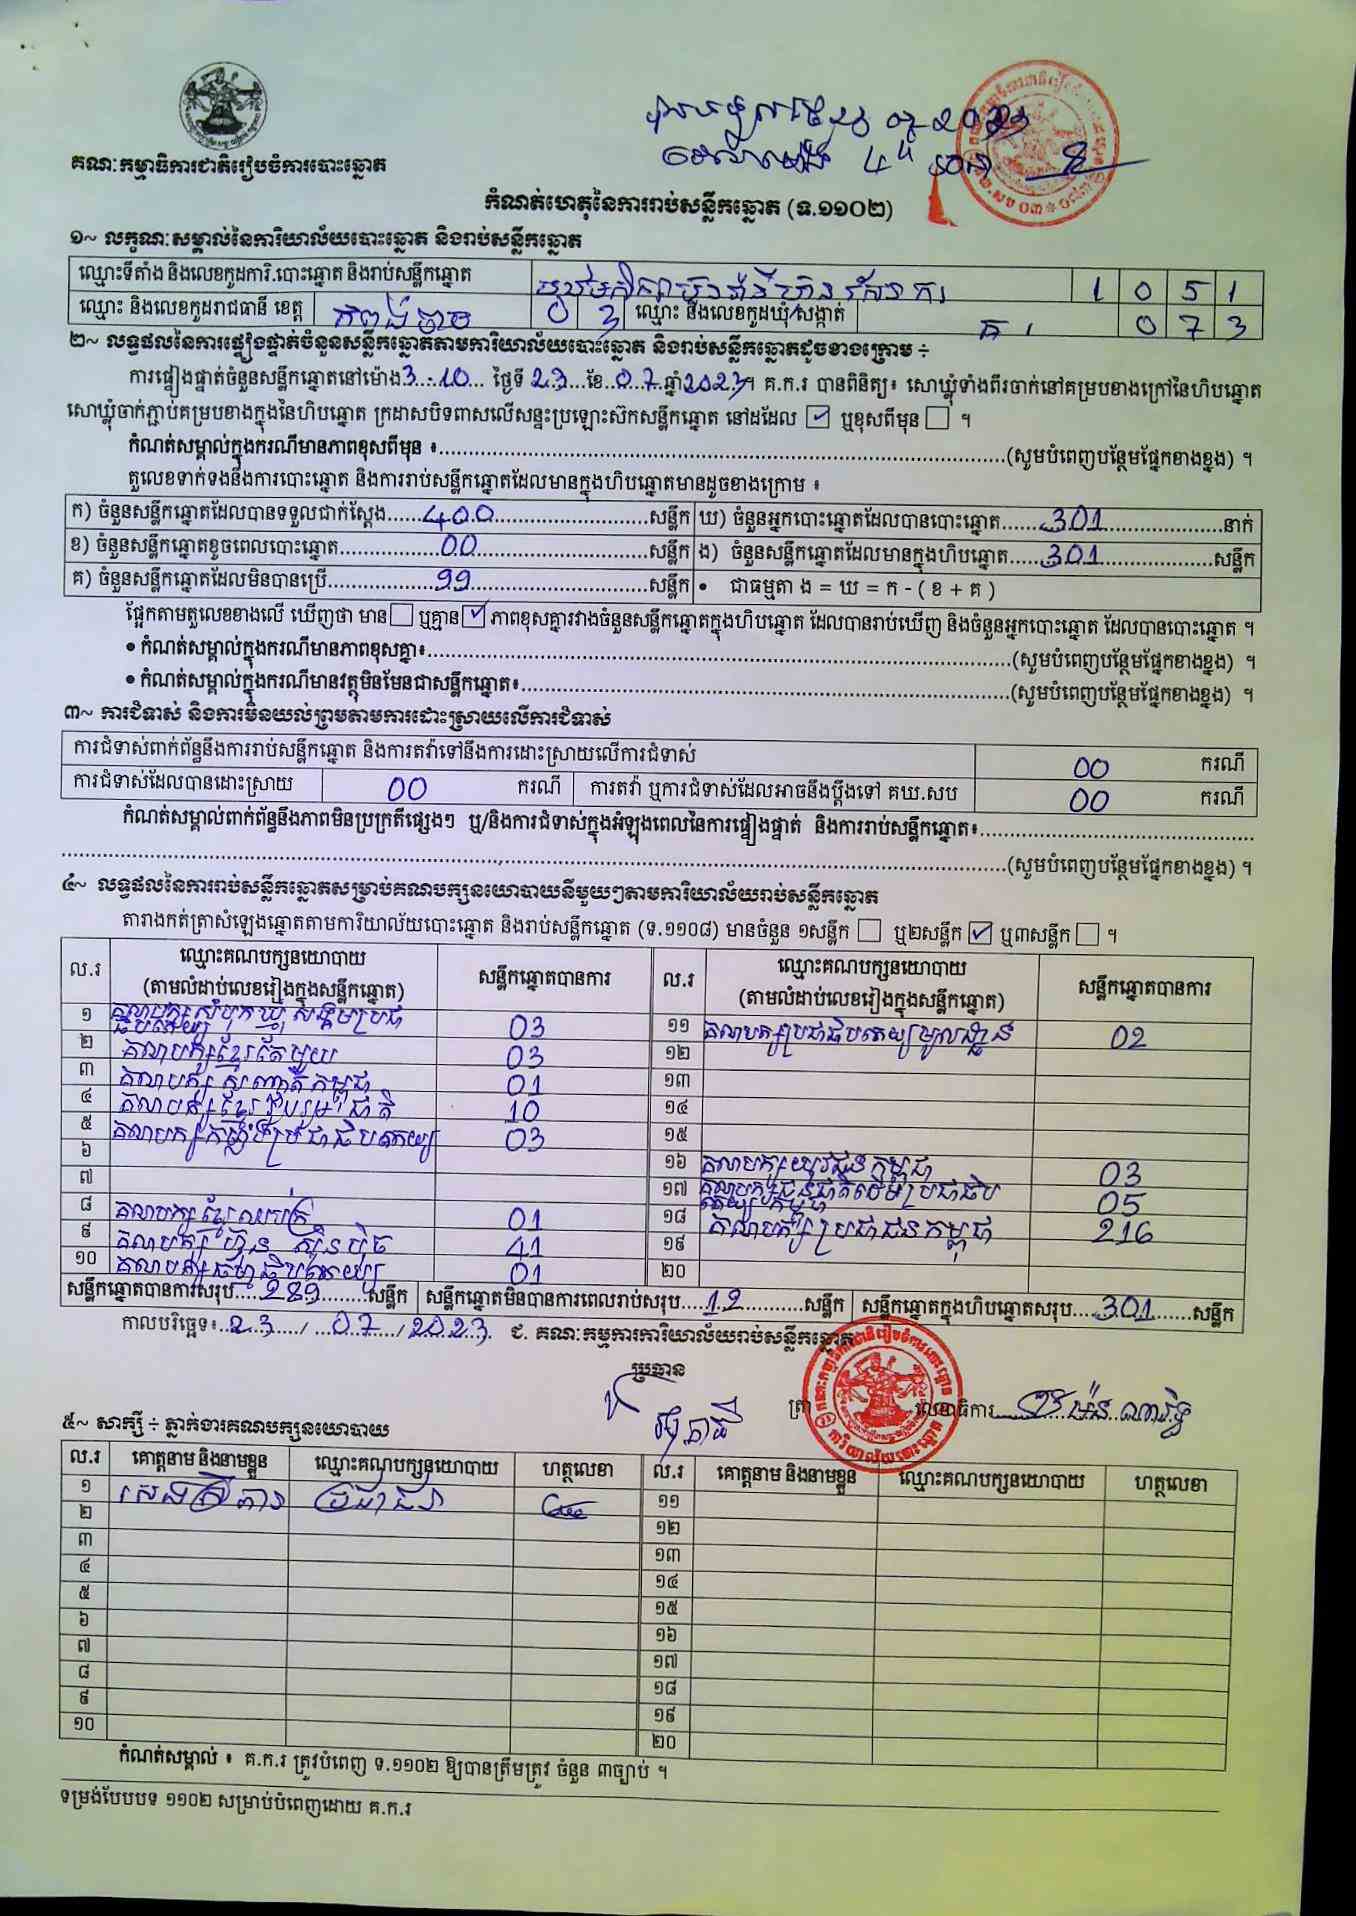 គណៈកម្មាធិការជាតិរៀបចំការបោះឆ្នោត
កំណត់ហេតុនៃការរាប់សន្លឹកឆ្នោត (ទ.១១០២)
១~ លក្ខណៈសម្គាល់នៃការិយាល័យបោះឆ្នោត និងរាប់សន្លឹកឆ្នោត
ឈ្មោះទីតាំង និងលេខកូដការិ.បោះឆ្នោត និងរាប់សន្លឹកឆ្នោត 1 0 5 1
ឈ្មោះ និងលេខកូដរាជធានី ខេត្ត កំពង់ចាម 0 3 ឈ្មោះ និងលេខកូដឃុំ/សង្កាត់ គរ 0 7 3
២~ លទ្ធផលនៃការផ្ទៀងផ្ទាត់ចំនួនសន្លឹកឆ្នោតតាមការិយាល័យបោះឆ្នោត និងរាប់សន្លឹកឆ្នោតដូចខាងក្រោម ÷
ការផ្ទៀងផ្ទាត់ចំនួនសន្លឹកឆ្នោតនៅម៉ោង 3-10 ថ្ងៃទី 23 ខែ 07 ឆ្នាំ 2023។ គ.ក.រ បានពិនិត្យ៖ សោឃ្លុំទាំងពីរចាក់នៅគម្របខាងក្រៅនៃហិបឆ្នោត
សោឃ្លុំចាក់ភ្ជាប់គម្របខាងក្នុងនៃហិបឆ្នោត ក្រដាសបិទពាសលើសន្ទះប្រឡោះស៊កសន្លឹកឆ្នោត នៅដដែល ☑ ឬខុសពីមុន ☐ ។
កំណត់សម្គាល់ក្នុងករណីមានភាពខុសពីមុន ៖ (សូមបំពេញបន្ថែមផ្នែកខាងខ្នង) ។
តួលេខទាក់ទងនឹងការបោះឆ្នោត និងការរាប់សន្លឹកឆ្នោតដែលមានក្នុងហិបឆ្នោតមានដូចខាងក្រោម ៖
ក) ចំនួនសន្លឹកឆ្នោតដែលបានទទួលជាក់ស្តែង 400 សន្លឹក ឃ) ចំនួនអ្នកបោះឆ្នោតដែលបានបោះឆ្នោត 301 នាក់
ខ) ចំនួនសន្លឹកឆ្នោតខូចពេលបោះឆ្នោត 00 សន្លឹក ង) ចំនួនសន្លឹកឆ្នោតដែលមានក្នុងហិបឆ្នោត 301 សន្លឹក
គ) ចំនួនសន្លឹកឆ្នោតដែលមិនបានប្រើ 99 សន្លឹក • ជាធម្មតា ង = ឃ = ក - ( ខ + គ )
ផ្អែកតាមតួលេខខាងលើ ឃើញថា មាន ☐ ឬគ្មាន ☑ ភាពខុសគ្នារវាងចំនួនសន្លឹកឆ្នោតក្នុងហិបឆ្នោត ដែលបានរាប់ឃើញ និងចំនួនអ្នកបោះឆ្នោត ដែលបានបោះឆ្នោត ។
• កំណត់សម្គាល់ក្នុងករណីមានភាពខុសគ្នា៖ (សូមបំពេញបន្ថែមផ្នែកខាងខ្នង) ។
• កំណត់សម្គាល់ក្នុងករណីមានវត្ថុមិនមែនជាសន្លឹកឆ្នោត៖ (សូមបំពេញបន្ថែមផ្នែកខាងខ្នង) ។
៣~ ការជំទាស់ និងការមិនយល់ព្រមតាមការដោះស្រាយលើការជំទាស់
ការជំទាស់ពាក់ព័ន្ធនឹងការរាប់សន្លឹកឆ្នោត និងការតវ៉ាទៅនឹងការដោះស្រាយលើការជំទាស់ 00 ករណី
ការជំទាស់ដែលបានដោះស្រាយ 00 ករណី ការតវ៉ា ឬការជំទាស់ដែលអាចនឹងប្តឹងទៅ គឃ.សប 00 ករណី
កំណត់សម្គាល់ពាក់ព័ន្ធនឹងភាពមិនប្រក្រតីផ្សេងៗ ឬ/និងការជំទាស់ក្នុងអំឡុងពេលនៃការផ្ទៀងផ្ទាត់ និងការរាប់សន្លឹកឆ្នោត៖
(សូមបំពេញបន្ថែមផ្នែកខាងខ្នង) ។
៤~ លទ្ធផលនៃការរាប់សន្លឹកឆ្នោតសម្រាប់គណបក្សនយោបាយនីមួយៗតាមការិយាល័យរាប់សន្លឹកឆ្នោត
តារាងកត់ត្រាសំឡេងឆ្នោតតាមការិយាល័យបោះឆ្នោត និងរាប់សន្លឹកឆ្នោត (ទ.១១០៨) មានចំនួន ១សន្លឹក ☐ ឬ២សន្លឹក ☑ ឬ៣សន្លឹក ☐ ។
ល.រ ឈ្មោះគណបក្សនយោបាយ (តាមលំដាប់លេខរៀងក្នុងសន្លឹកឆ្នោត) សន្លឹកឆ្នោតបានការ ល.រ ឈ្មោះគណបក្សនយោបាយ (តាមលំដាប់លេខរៀងក្នុងសន្លឹកឆ្នោត) សន្លឹកឆ្នោតបានការ
១ គណបក្សសំបុកឃ្មុំសង្គមប្រជាធិបតេយ្យ 03 ១១ គណបក្សប្រជាធិបតេយ្យមូលដ្ឋាន 02
២ គណបក្សខ្មែរតែមួយ 03 ១២
៣ គណបក្ស សញ្ជាតិកម្ពុជា 01 ១៣
៤ គណបក្សខ្មែររួបរួមជាតិ 10 ១៤
៥ គណបក្សកម្លាំងប្រជាធិបតេយ្យ 03 ១៥
៦ ១៦ គណបក្សយុវជនកម្ពុជា 03
៧ ១៧ គណបក្សជនជាតិដើមប្រជាធិបតេយ្យកម្ពុជា 05
៨ គណបក្សខ្មែរឈប់ក្រ 01 ១៨ គណបក្សប្រជាជនកម្ពុជា 216
៩ គណបក្ស ហ៊្វុនស៊ិនប៉ិច 41 ១៩
១០ គណបក្សធម្មាធិបតេយ្យ 01 ២០
សន្លឹកឆ្នោតបានការសរុប 289 សន្លឹក សន្លឹកឆ្នោតមិនបានការពេលរាប់សរុប 12 សន្លឹក សន្លឹកឆ្នោតក្នុងហិបឆ្នោតសរុប 301 សន្លឹក
កាលបរិច្ឆេទ៖ 23 / 07 / 2023 ជ. គណៈកម្មការការិយាល័យរាប់សន្លឹកឆ្នោត
ប្រធាន
ត្រា លេខាធិការ
៥~ សាក្សី ÷ ភ្នាក់ងារគណបក្សនយោបាយ
ល.រ គោត្តនាម និងនាមខ្លួន ឈ្មោះគណបក្សនយោបាយ ហត្ថលេខា ល.រ គោត្តនាម និងនាមខ្លួន ឈ្មោះគណបក្សនយោបាយ ហត្ថលេខា
១ ប្រជាជន ១១
២ ១២
៣ ១៣
៤ ១៤
៥ ១៥
៦ ១៦
៧ ១៧
៨ ១៨
៩ ១៩
១០ ២០
កំណត់សម្គាល់ ៖ គ.ក.រ ត្រូវបំពេញ ទ.១១០២ ឱ្យបានត្រឹមត្រូវ ចំនួន ៣ច្បាប់ ។
ទម្រង់បែបបទ ១១០២ សម្រាប់បំពេញដោយ គ.ក.រ